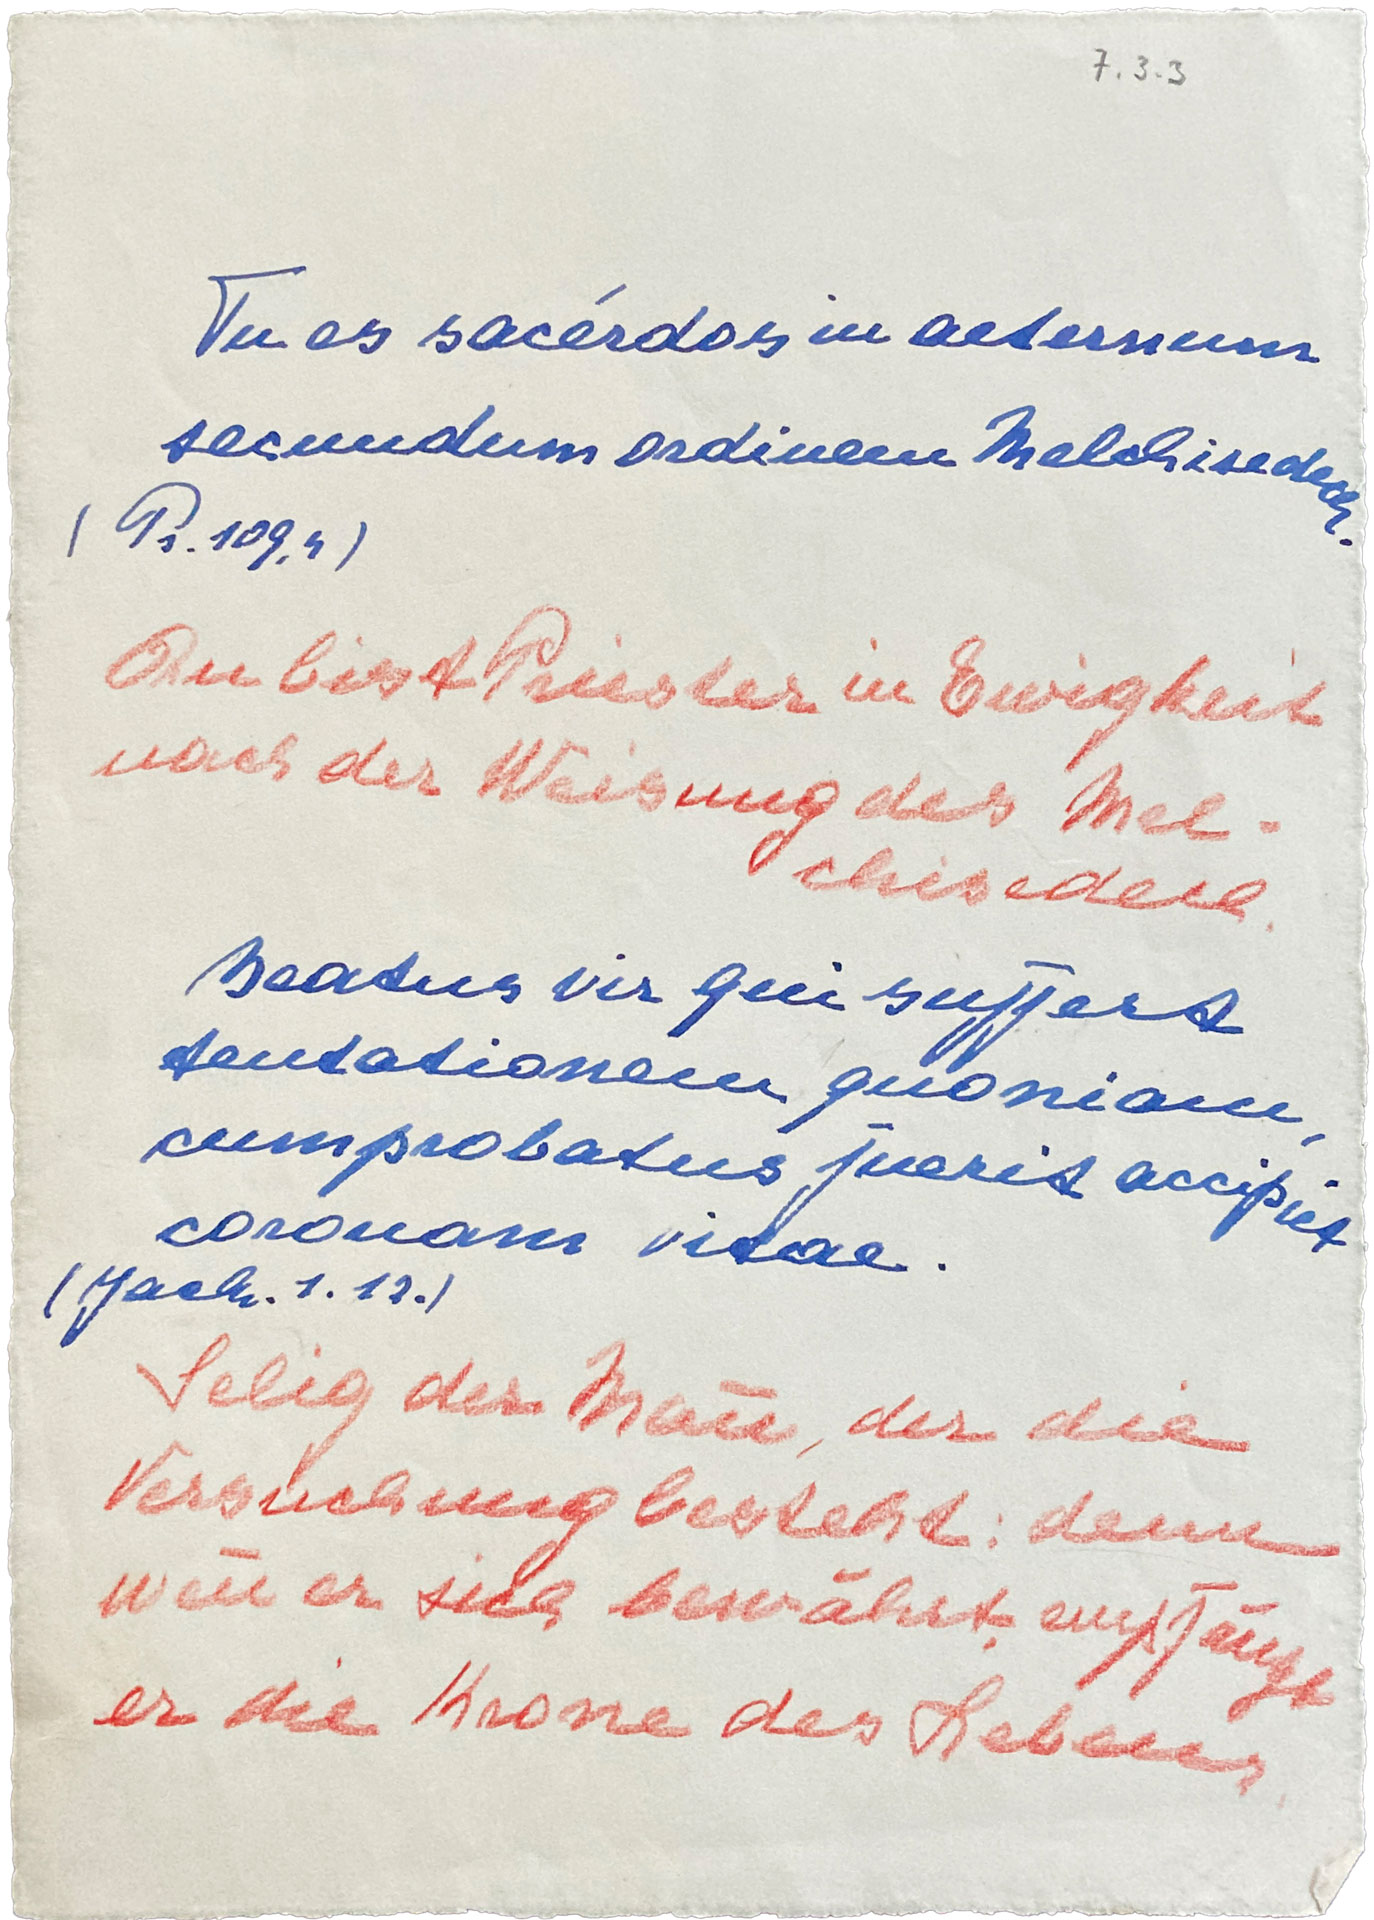 7.3.3
Tu es sacérdos in aeternum
secundum ordinem Melchisedech.
(Ps. 109,4)
Du bist Priester in Ewigkeit
nach der Weisung des Mel-
chisedech.
Beatus vir qui suffert
tentationem quoniam,
cum probatus fuerit accipiet
coronam vitae.
(Jack. 1. 12.)
Selig der Mam̅, der die
Versuchung besteht: denn
wen̅ er sich bewährt, empfängt
er die Krone des Lebens.